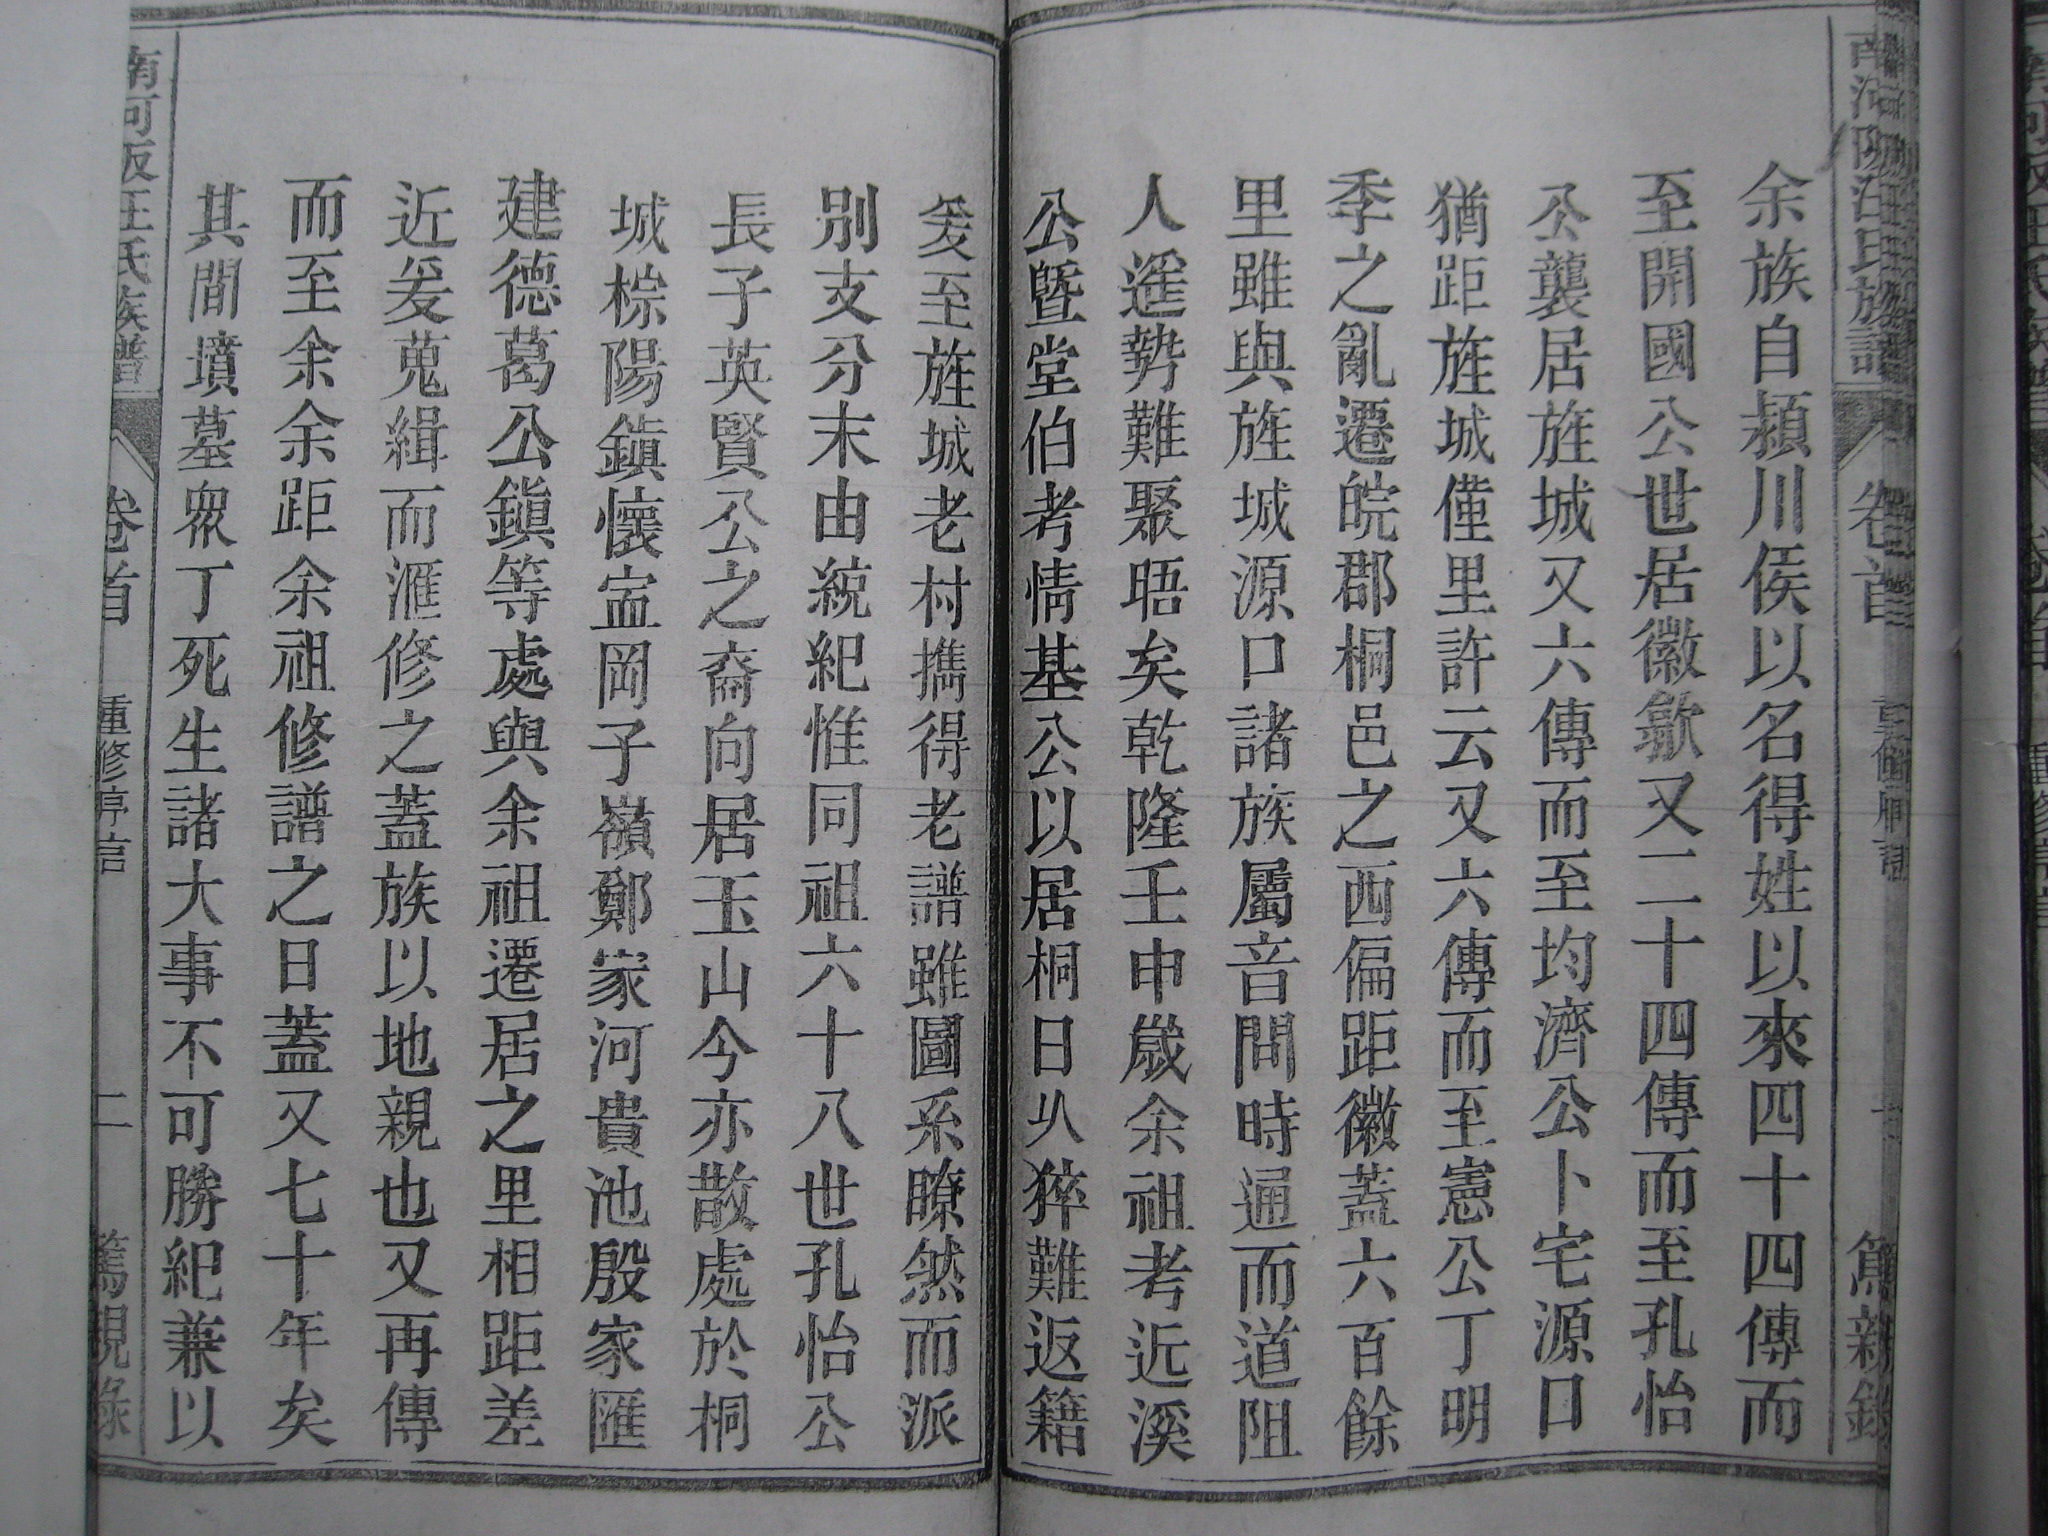 余族自潁川侯以名得姓以來四十四傳而
至開國公世居徽歙又二十四傳而至孔怡
公襲居旌城又六傳而至均濟公卜宅源口
猶距旌城僅里許云又六傳而至憲公丁明
季之亂遷皖郡桐邑之西偏距徽蓋六百餘
里雖與旌城源口諸族屬音問時通而道阻
人遥勢難聚晤矣乾隆壬申歲余祖考近溪
公暨堂伯考情基公以居桐日以猝難返籍
爰至旌城老村攜得老譜雖圖系瞭然而派
別支分末由統紀惟同祖六十八世孔怡公
長子英賢公之裔向居玉山今亦散處於桐
城棕陽鎮懷寍岡子嶺鄭家河貴池殷家匯
建德葛公鎮等處與余祖遷居之里相距差
近爰蒐緝而滙修之蓋族以地親也又再傳
而至余余距余祖修譜之日蓋又七十年矣
其間墳墓衆丁死生諸大事不可勝紀兼以
南河阪汪氏族譜 卷首 重修序言 二 篤親錄